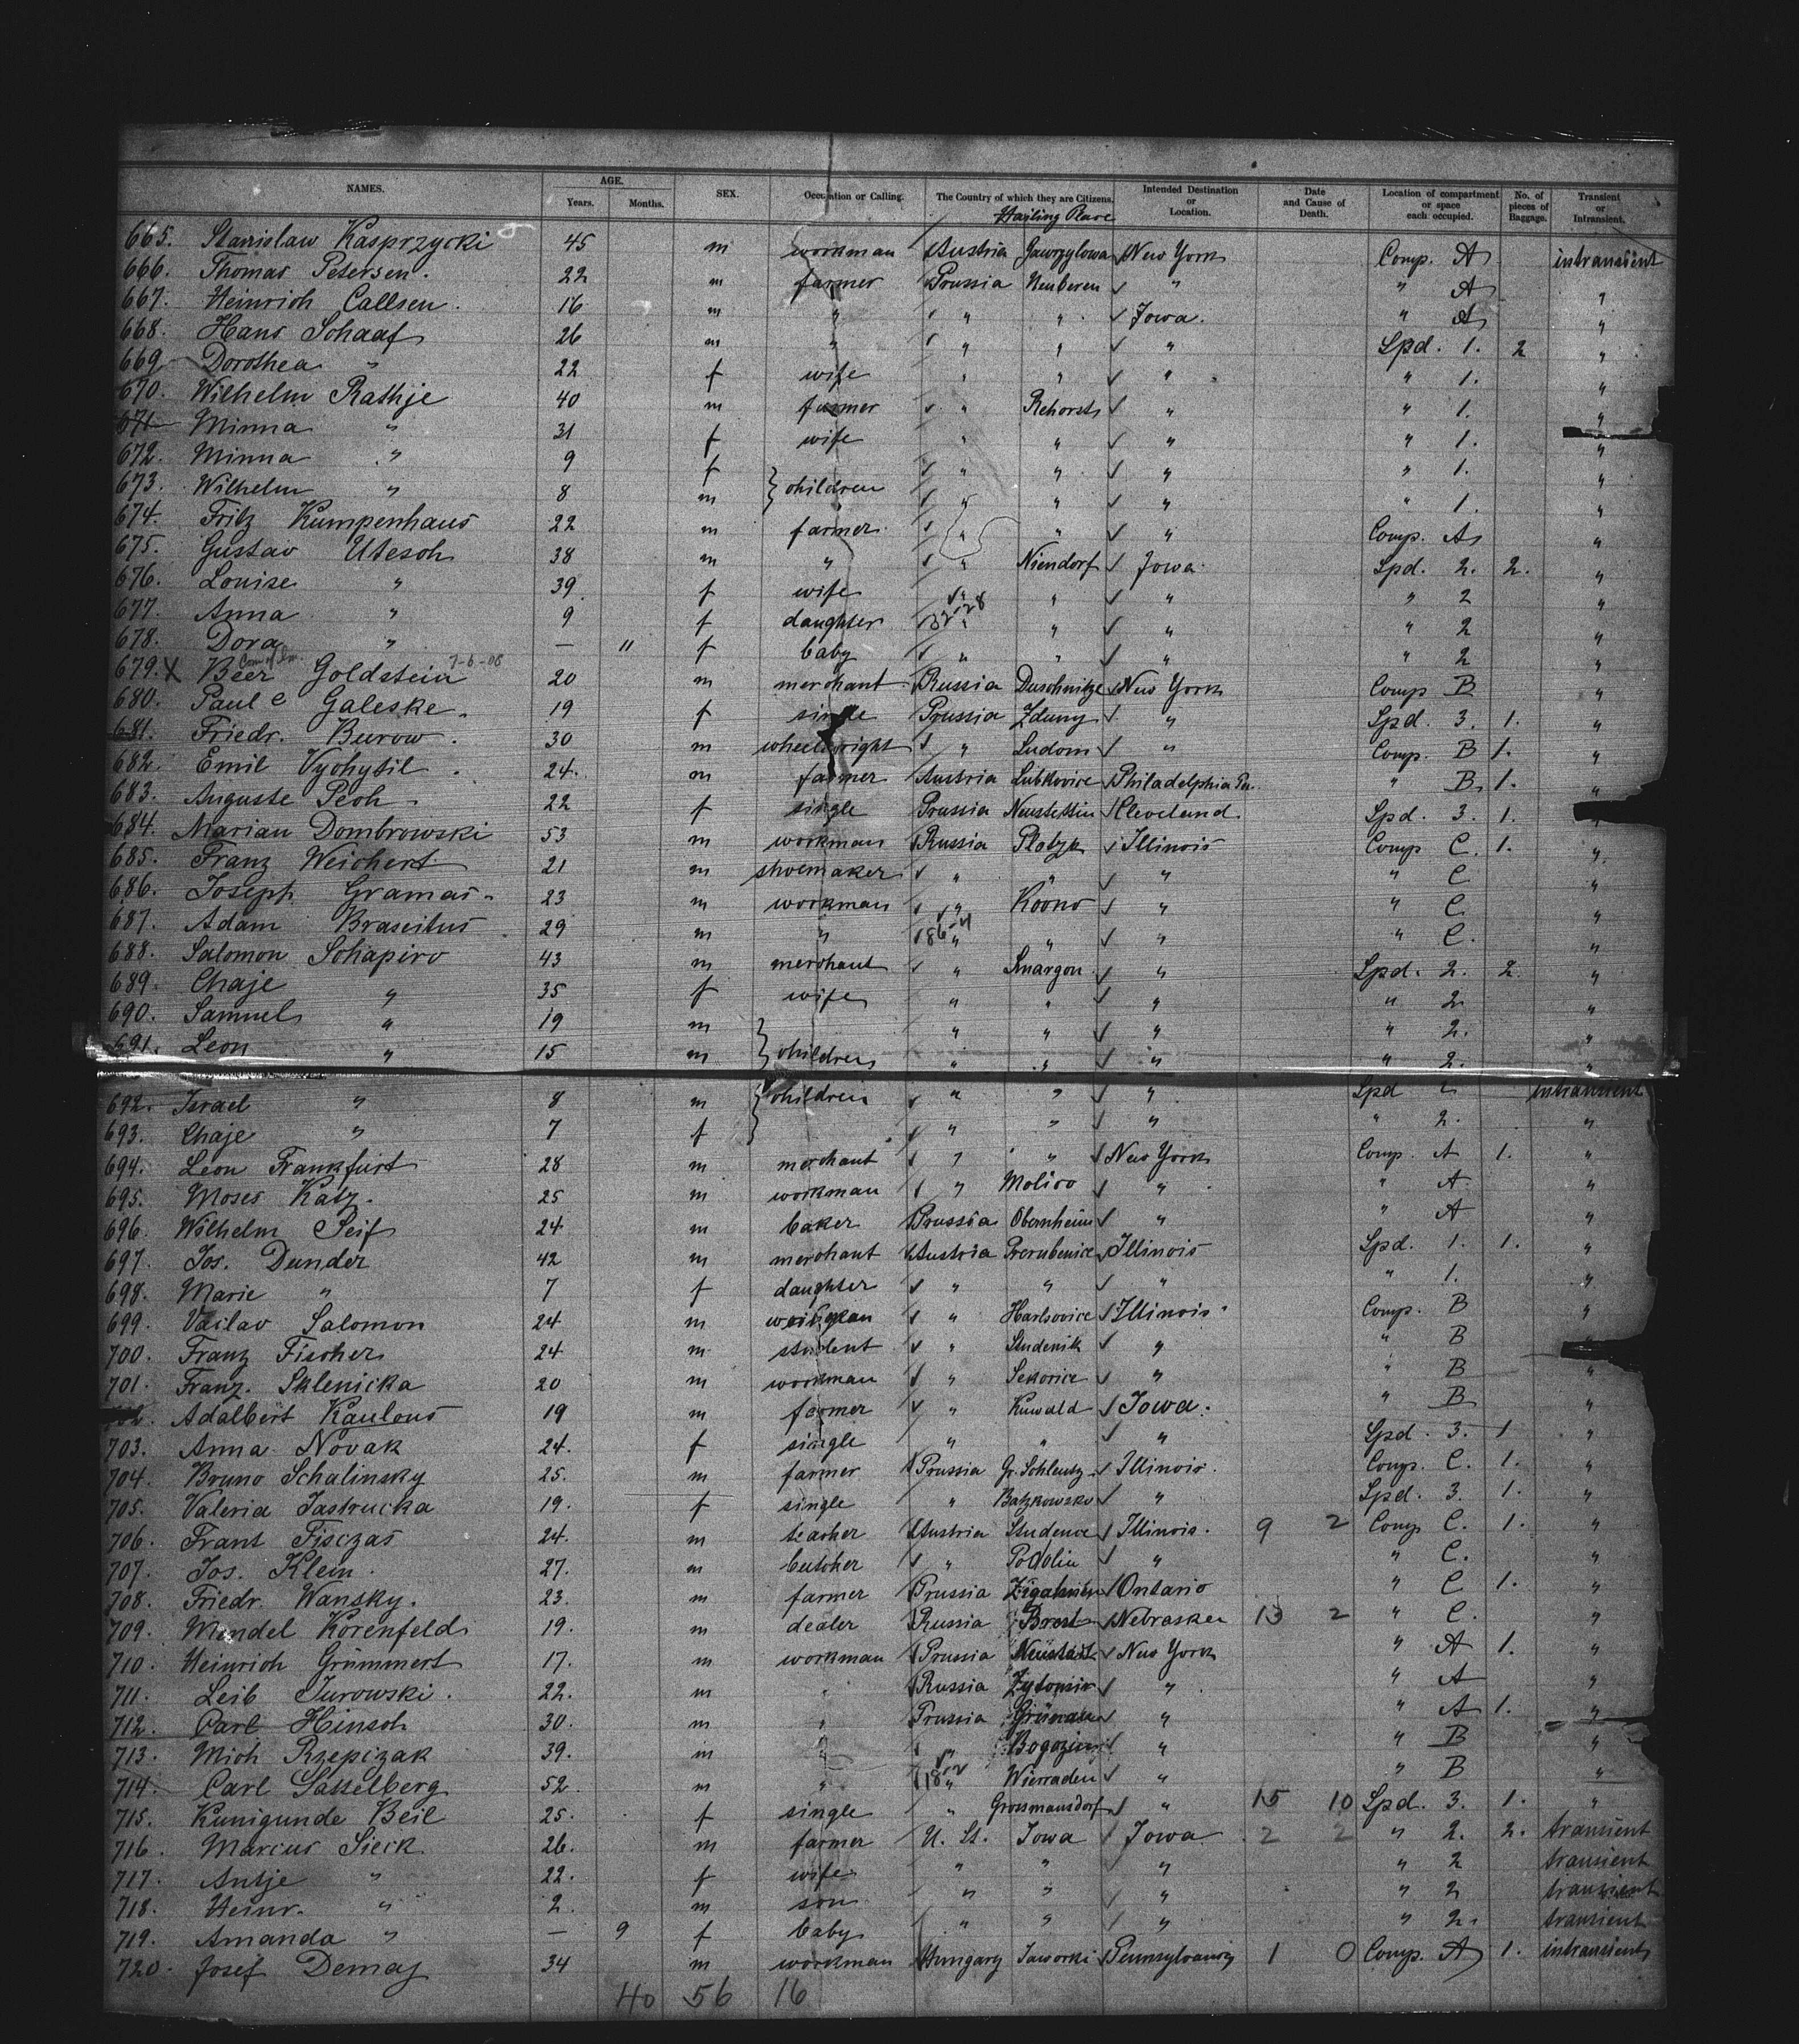 NAMES. AGE. Years. Months. SEX. Occupation or Calling. The Country of which they are Citizens. Intended Destination or Location. Date and Cause of Death. Location of compartment or space each occupied. No. of pieces of Baggage. Transient or Intransient.
Hailing Place
665. Stanislaw Kasprzycki 45 m workman Austria New York Comp. A intransient
666. Thomas Petersen. 22 m farmer Prussia Neuberen " " A "
667. Heinrich Callsen. 16 m " " " Iowa. " A "
668. Hans Schaaf 26 m " " " " Spd. 1. 2 "
669 Dorothea " 22 f wife " " " " 1. "
670. Wilhelm Rathje 40 m farmer " Rehorst " " 1. "
671 Minna " 31 f wife " " " " 1. "
672. Minna " 9 f children " " " " 1. "
673. Wilhelm " 8 m " " " " 1. "
674. Fritz Kumpenhaus 22 m farmer " " " Comp. A "
675. Gustav Utesch 38 m " " Niendorf Iowa. Spd. 2. 2. "
676. Louise " 39 f wife " " " " 2 "
677. Anna " 9 f daughter " " " " 2 "
678. Dora " — 11 f baby " " " " 2 "
679. X Beer Goldstein 7-6-08 20 m merchant Russia Duschnitze New York Comp B "
680. Paul e Galeske. 19 f single Prussia Zduny " Spd. 3. 1. "
681. Friedr. Burow. 30 m wheelwright " Ludom " Comp. B 1. "
682. Emil Vychytil. 24. m farmer Austria Lubkovice Philadelphia Pa. " B. 1. "
683. Auguste Pech. 22 f single Prussia Neustettin Cleveland. Spd. 3. 1. "
684. Marian Dombrowski 53 m workman Russia Plotzk Illinois Comp C. 1. "
685. Franz Weichert 21 m shoemaker " " " " C "
686. Joseph Gramas. 23 m workman " Kovno " " C. "
687. Adam Braseitus 29 m " " " " " C. "
688. Salomon Schapiro 43 m merchant " Smargon " Spd. 2. 2. "
689. Chaje " 35 f wife " " " " 2. "
690. Samuel " 19 m children " " " " 2. "
691. Leon " 15 m " " " " 2. "
692. Israel " 8 m children " " " Spd intransient
693. Chaje " 7 f " " " " 2. "
694. Leon Frankfurt 28 m merchant " " New York Comp. A 1. "
695. Moses Katz. 25 m workman " Molivo " " A "
696. Wilhelm Seif 24 m baker Prussia Obernheim " " A "
697. Jos. Dunder 42 m merchant Austria Illinois Spd. 1. 1. "
698. Marie " 7 f daughter " " " " 1. "
699. Vaclav Salomon 24 m workman " Harlsovice Illinois Comp. B "
700. Franz Fischer 24 m student " Studenik " " B "
701. Franz. Sklenicka 20 m workman " Sekovice " " B "
Adalbert Kaulous 19 m farmer " Kuwald Iowa. " B "
703. Anna Novak 24. f single " " " Spd. 3. 1 "
704. Bruno Schalinsky 25. m farmer Prussia Gr. Schleutz Illinois. Comp. C. 1. "
705. Valeria Jastrucka 19. f single " Batzkowsko " Spd. 3. 1. "
706. Frant Fisczas 24. m teacher Austria Studence Illinois. 9 2 Comp C. 1. "
707. Jos. Klein. 27. m butcher " Podolin " " C. "
708. Friedr. Wansky. 23. m farmer Prussia Ontario " C 1. "
709. Mendel Korenfeld 19. m dealer Russia Brest Nebraska 13 2 " C. "
710. Heinrich Grümmert 17. m workman Prussia Neustadt New York " A 1. "
711. Leib Jurowski. 22. m " Russia Zytomir " " A "
712. Carl Hinsch 30. m " Prussia Grünau " " A 1. "
713. Mich Rzepiczak 39. m " " " " B "
714. Carl Sasselberg 52. m " " Wierraden " " B "
715. Kunigunde Beil 25. f single " Grossmansdorf " 15 10 Spd. 3. 1. "
716. Marcus Sieck 26. m farmer U. St. Iowa Iowa 2 2 " 2. 2. transient
717. Antje " 22. f wife " " " " 2 transient
718. Heinr. " 2. m son " " " " 2 transient
719. Amanda " — 9 f baby " " " " 2. transient
720. Josef Demaj 34 m workman Hungary Jaworki Pennsylvania 1 0 Comp. A 1. intransient
40 56 16